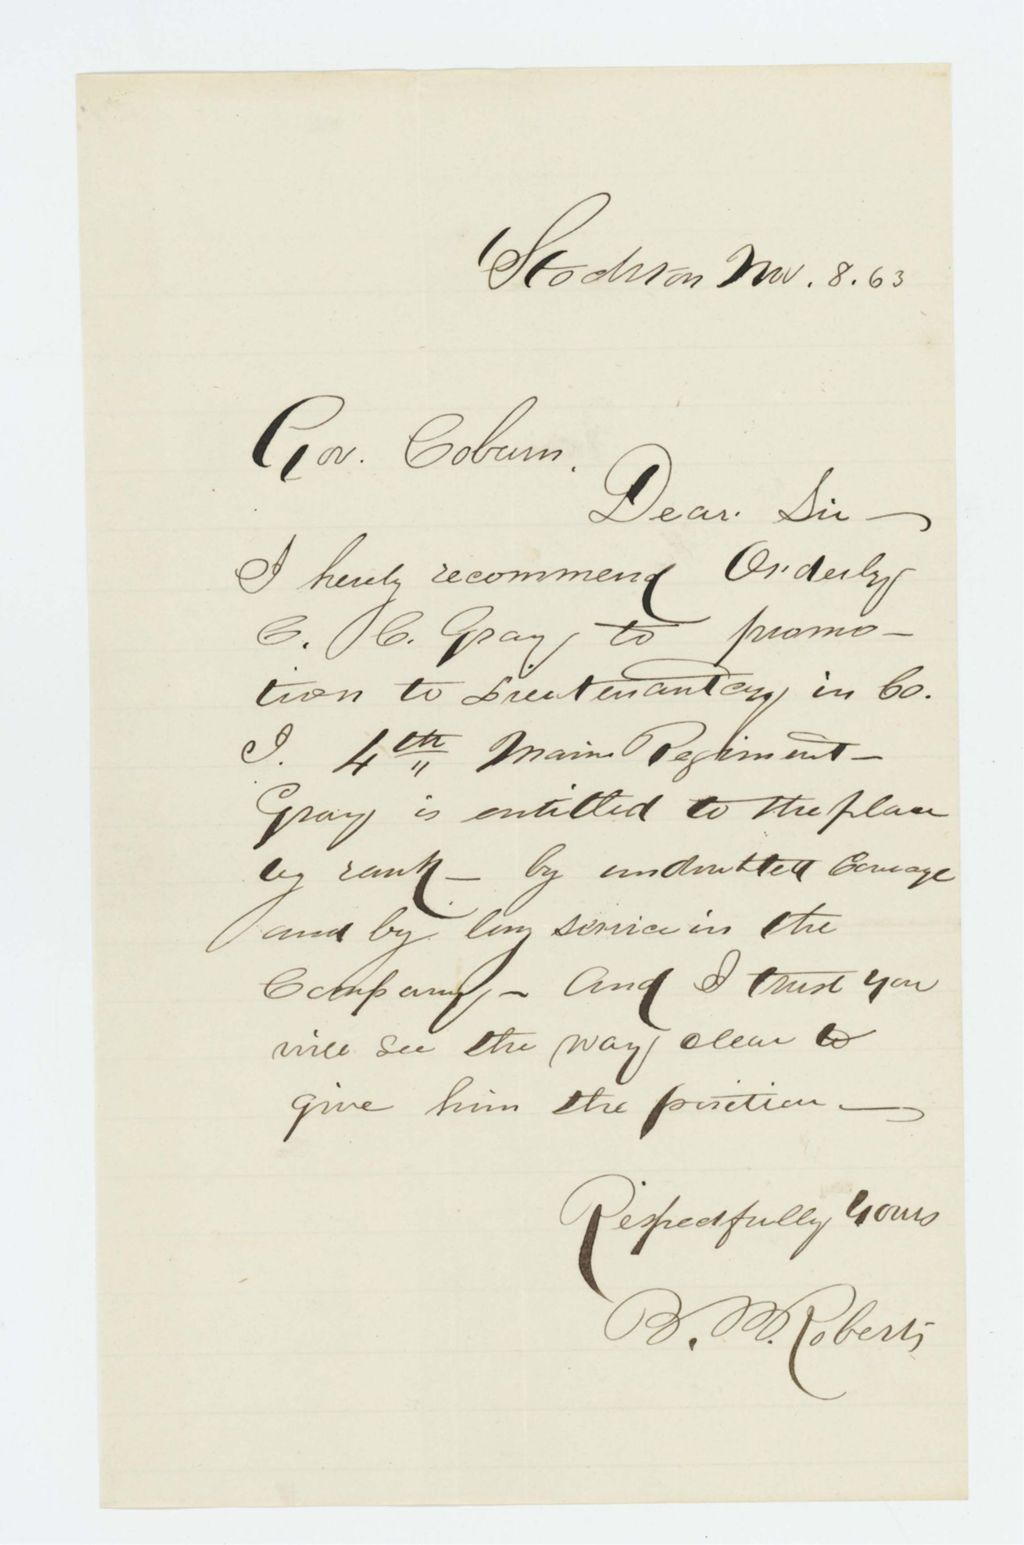 Stockton Nov. 8. 63
Gov. Coburn.
Dear. Sir —
I hereby recommend Orderly
C. C. Gray to promo-
tion to Lieutenantcy in Co.
I. 4th Maine Regiment —
Gray is entitled to the place
by rank — by undoubted Courage
and by long service in the
Company — And I trust you
will see the way clear to
give him the position —
Respectfully Yours
B. M. Roberts